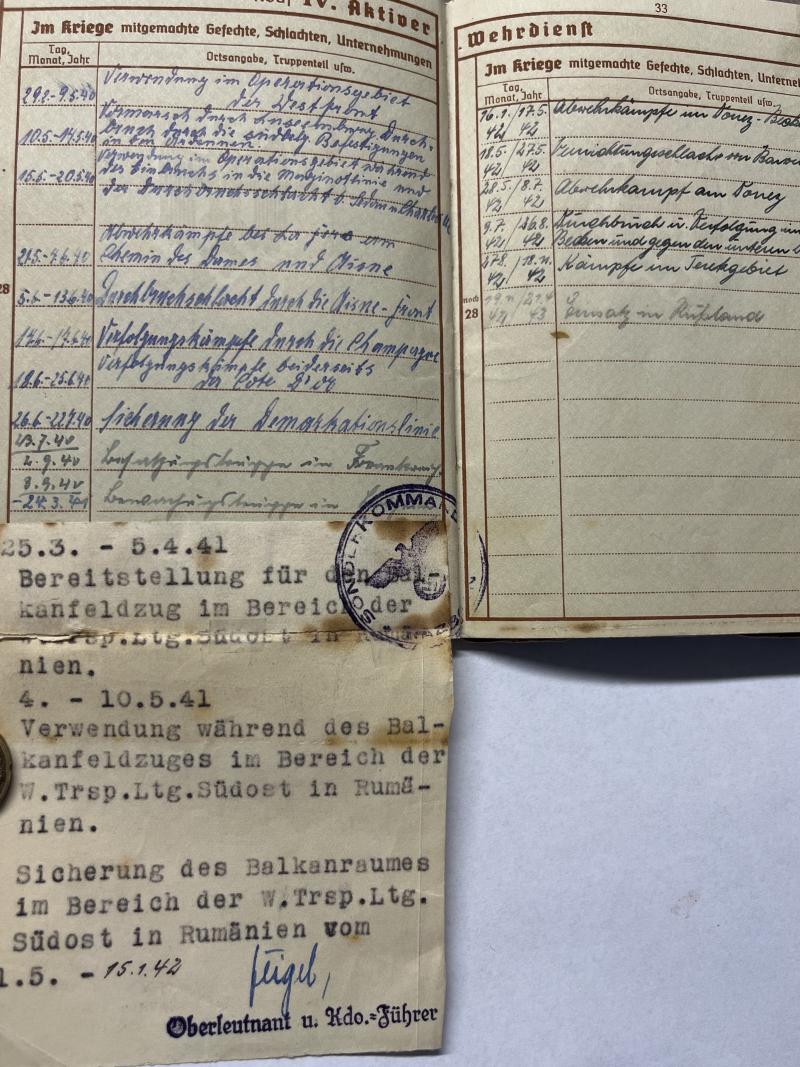 IV. Aktiver
Im Kriege mitgemachte Gefechte, Schlachten, Unternehmungen
Tag, Monat, Jahr
Ortsangabe, Truppenteil usw.
Verwendung im Operationsgebiet
der Westfront
Vormarsch durch Luxemburg, Durch-
bruch durch die südbelg. Befestigungen
10.5.-14.5.40 in den Ardennen.
Verwendung im Operationsgebiet während
15.5.-20.5.40 des Einbruchs in die Maginotlinie und
Abwehrkämpfe bei La fère am
Chemin des Dames und Aisne
28
5.6.-13.6.40 Durchbruchschlacht durch die Aisne-front
Verfolgungskämpfe durch die Champagne
Verfolgungskämpfe beiderseits
18.6.-25.6.40 der Cote D'or
Sicherung der Demarkationslinie
23.7.40
2.9.40 Besatzungstruppe in
8.9.40
- 24.3.41 in
SONDERKOMMA
25.3. - 5.4.41
Bereitstellung für den Bal-
kanfeldzug im Bereich der
W.Trsp.Ltg.Südost in Rumä-
nien.
4. - 10.5.41
Verwendung während des Bal-
kanfeldzuges im Bereich der
W.Trsp.Ltg.Südost in Rumä-
nien.
Sicherung des Balkanraumes
im Bereich der W.Trsp.Ltg.
Südost in Rumänien vom
1.5. - 15.1.42
Oberleutnant u. Kdo.=Führer
33
Wehrdienst
Im Kriege mitgemachte Gefechte, Schlachten, Unterneh
Tag, Monat, Jahr
Ortsangabe, Truppenteil usw.
16.1./17.5. Abwehrkämpfe im Donez-
42/42
18.5./27.5. Vernichtungsschlacht von
42/42
28.5./8.7. Abwehrkampf am Donez
42/42
9.7./26.8. Durchbruch u. Verfolgung im
42/42 Becken und gegen den unteren
27.8./18.11. Kämpfe im Terekgebiet
42/42
noch
28
Einsatz in Rußland
42/43